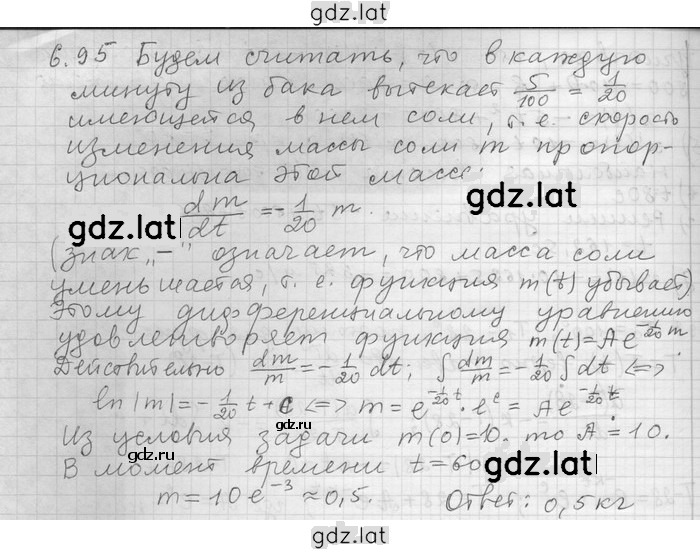 gdz.lat
6.95 Будем считать, что в каждую
минуту из бака вытекает 5/100 = 1/20
имеющейся в нем соли, т.е. скорость
изменения массы соли m пропор-
циональна этой массе:
dm/dt = -1/20 m.
gdz.lat
gdz.lat
(знак „-“ означает, что масса соли
уменьшается, т.е. функция m(t) убывает)
Этому дифференциальному уравнению
удовлетворяет функция m(t)=Ae^{-1/20 t}
Действительно dm/m = -1/20 dt; ∫dm/m = -1/20 ∫dt <=>
ln|m| = -1/20 t + C <=> m = e^{-1/20 t} · e^c = Ae^{-1/20 t}
Из условия задачи m(0)=10, то A = 10.
В момент времени t = 60
gdz.lat
gdz.lat
m = 10e^{-3} ≈ 0,5. Ответ: 0,5 кг
gdz.lat